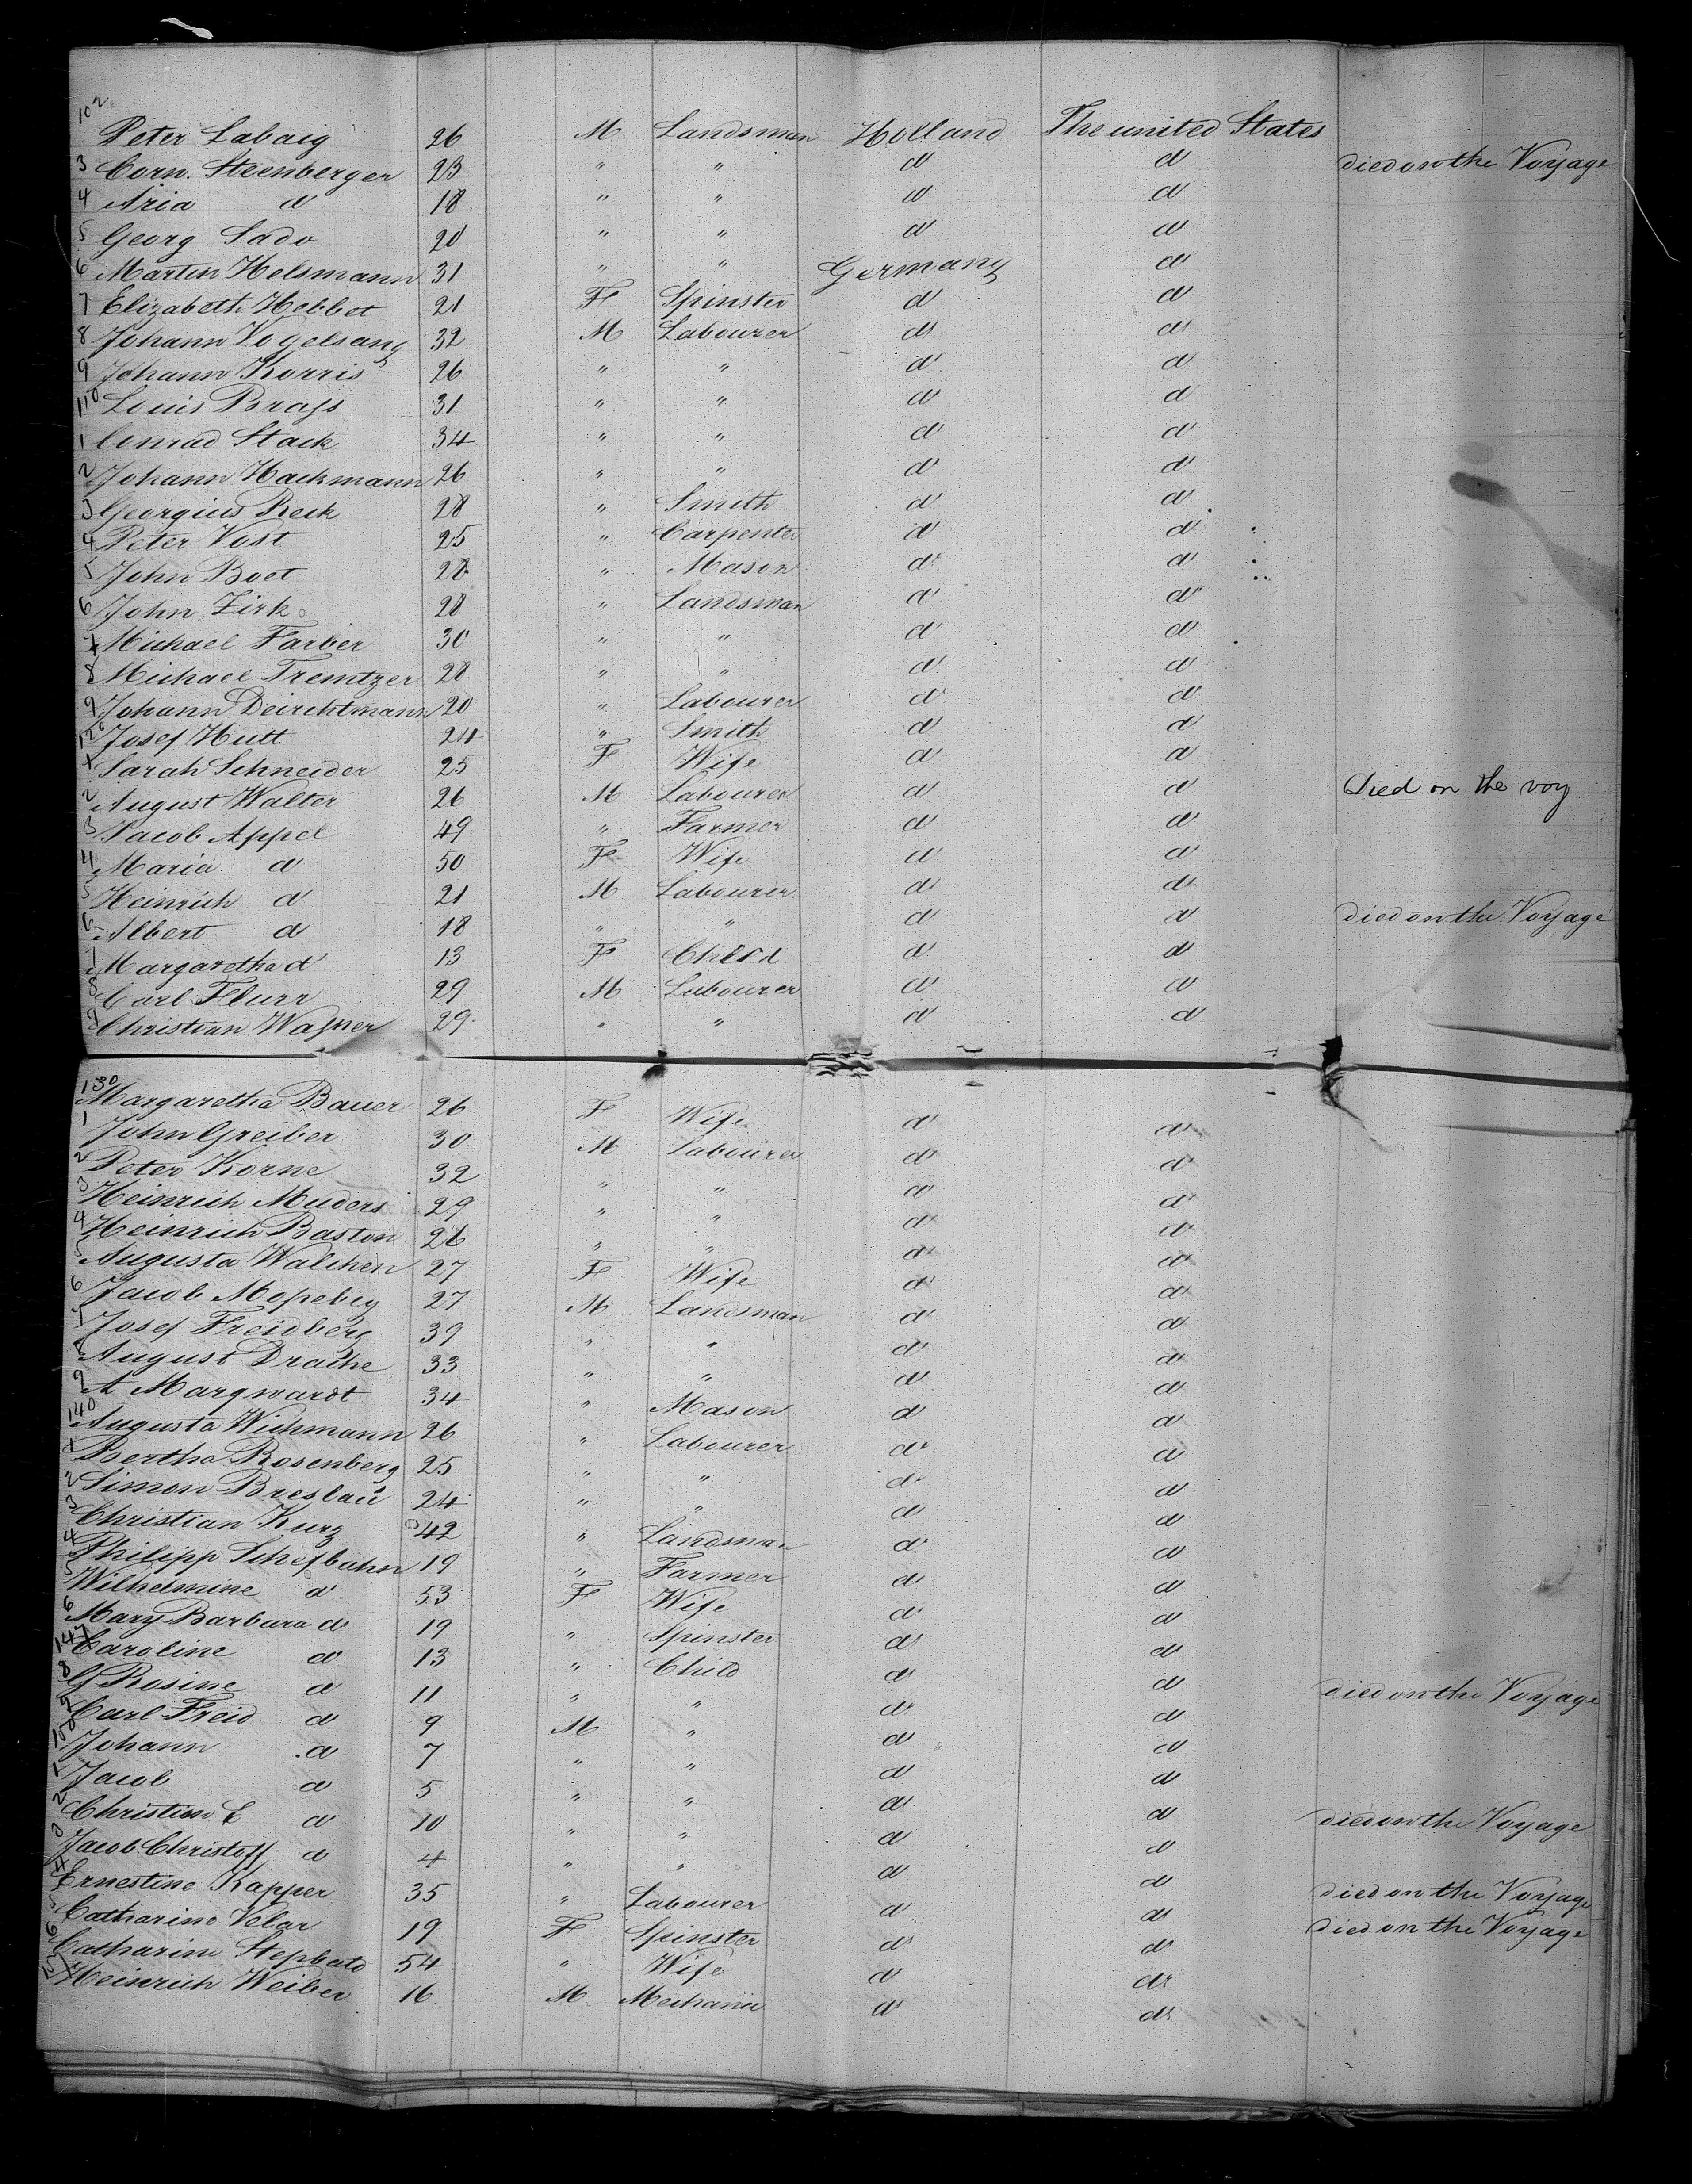 102 Peter Labaig 26 M Landsman Holland The united States
3 Corn. Steenberger 23 " " d d died on the Voyage
4 Aria d 18 " " d d
5 Georg Sado 20 " " d d
6 Martin Holsmann 31 " " Germany d
7 Elizabeth Hebbet 21 F Spinster d d
8 Johann Vogelsang 32 M Labourer d d
9 Johann Korris 26 " " d d
110 Louis Brass 31 " " d d
1 Conrad Stack 34 " " d d
2 Johann Hackmann 26 " " d d
3 Georgius Reck 28 " Smith d d
4 Peter Vost 25 " Carpenter d d
5 John Boet 28 " Mason d d
6 John Zirk 28 " Landsman d d
7 Michael Farber 30 " " d d
8 Michael Tremtzer 28 " " d d
9 Johann Deirchtmann 20 " Labourer d d
120 Josef Hutt 24 " Smith d d
1 Sarah Schneider 25 F Wife d d
2 August Walter 26 M Labourer d d Died on the voy
3 Jacob Appel 49 " Farmer d d
4 Maria d 50 F Wife d d
5 Heinrich d 21 M Labourer d d
6 Albert d 18 " " d d died on the Voyage
7 Margaretha d 13 F Child d d
8 Carl Flurr 29 M Labourer d d
9 Christian Wasner 29 " " d d
130 Margaretha Bauer 26 F Wife d d
1 John Greiber 30 M Labourer d d
2 Peter Korne 32 " " d d
3 Heinrich Muders 29 " " d d
4 Heinrich Baston 26 " " d d
5 Augusta Walchen 27 F Wife d d
6 Jacob Mopebeg 27 M Landsman d d
7 Josef Freidberg 39 " " d d
8 August Drache 33 " " d d
9 A Marqwardt 34 " Mason d d
140 Augusta Wichmann 26 " Labourer d d
1 Bertha Rosenberg 25 " " d d
2 Simon Breslau 24 " " d d
3 Christian Kurz 42 " Landsman d d
4 Philipp Schefbahn 19 " Farmer d d
5 Wilhelmine d 53 F Wife d d
6 Mary Barbara d 19 " Spinster d d
147 Caroline d 13 " Child d d
8 G Rosine d 11 " " d d died on the Voyage
9 Carl Freid d 9 M " d d
150 Johann d 7 " " d d
1 Jacob d 5 " " d d
2 Christian E d 10 " " d d died on the Voyage
3 Jacob Christoff d 4 " " d d
4 Ernestine Kapper 35 " Labourer d d died on the Voyage
5 Catharine Velar 19 F Spinster d d died on the Voyage
6 Catharine Stepbatd 54 " Wife d d
157 Heinrich Weiber 16 M Mechanic d d